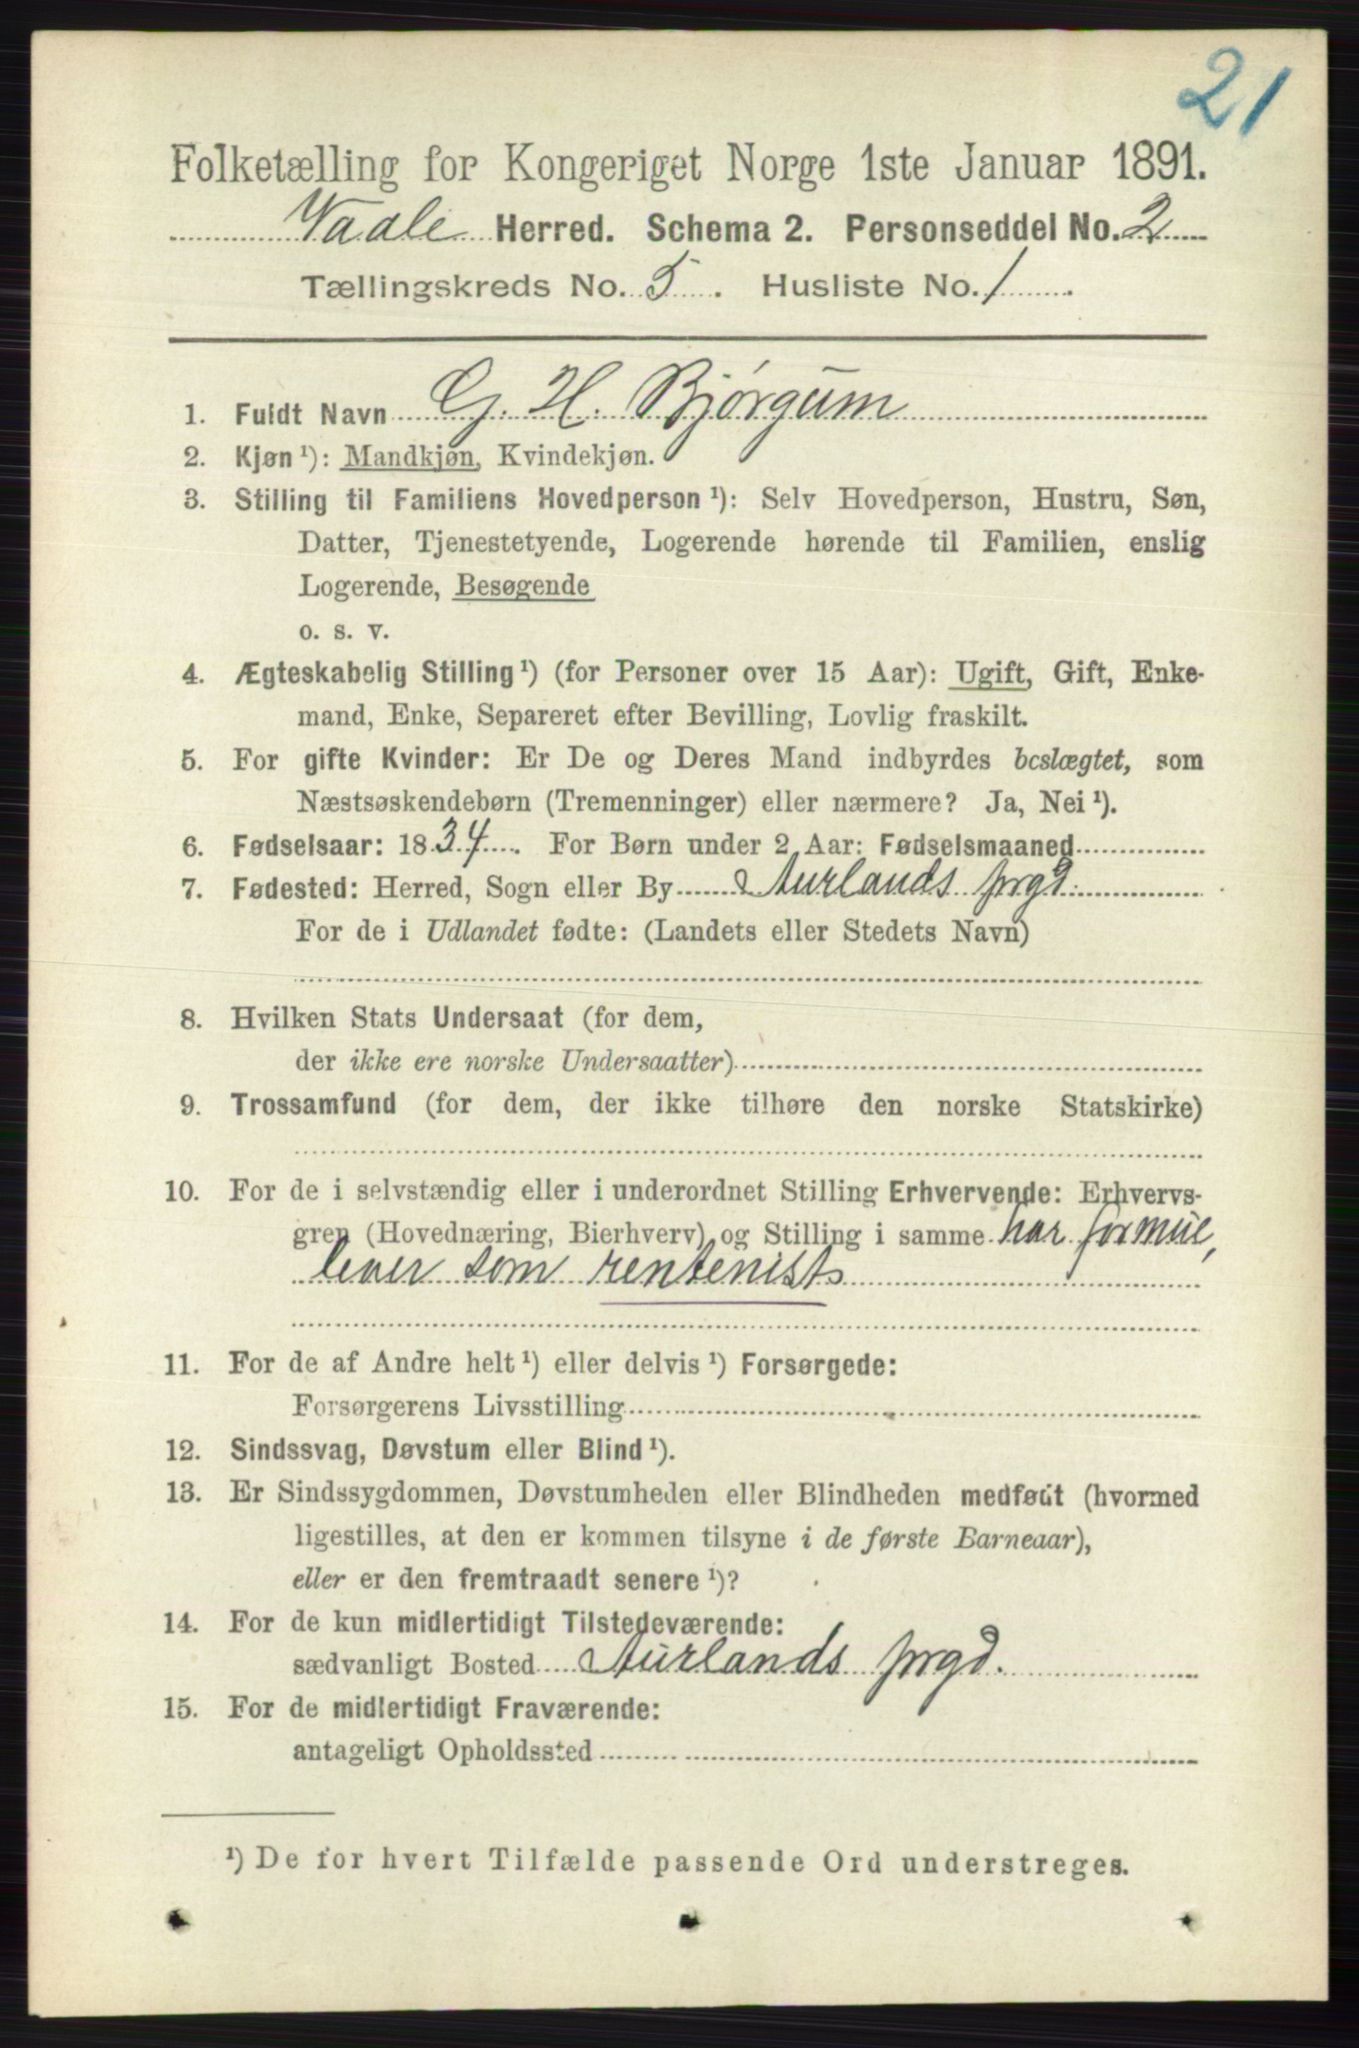 21
Folketælling for Kongeriget Norge 1ste Januar 1891.
Vaale Herred. Schema 2. Personseddel No. 2
Tællingskreds No. 5. Husliste No. 1
1. Fuldt Navn G. H. Bjørgum
2. Kjøn ¹): Mandkjøn, Kvindekjøn.
3. Stilling til Familiens Hovedperson ¹): Selv Hovedperson, Hustru, Søn,
Datter, Tjenestetyende, Logerende hørende til Familien, enslig
Logerende, Besøgende
o. s. v.
4. Ægteskabelig Stilling ¹) (for Personer over 15 Aar): Ugift, Gift, Enke-
mand, Enke, Separeret efter Bevilling, Lovlig fraskilt.
5. For gifte Kvinder: Er De og Deres Mand indbyrdes beslægtet, som
Næstsøskendebørn (Tremenninger) eller nærmere? Ja, Nei ¹).
6. Fødselsaar: 1834. For Børn under 2 Aar: Fødselsmaaned
7. Fødested: Herred, Sogn eller By Aurlands prgd.
For de i Udlandet fødte: (Landets eller Stedets Navn)
8. Hvilken Stats Undersaat (for dem,
der ikke ere norske Undersaatter)
9. Trossamfund (for dem, der ikke tilhøre den norske Statskirke)
10. For de i selvstændig eller i underordnet Stilling Erhvervende: Erhvervs-
gren (Hovednæring, Bierhverv) og Stilling i samme har formue,
lever som rentenist
11. For de af Andre helt ¹) eller delvis ¹) Forsørgede:
Forsørgerens Livsstilling
12. Sindssvag, Døvstum eller Blind ¹).
13. Er Sindssygdommen, Døvstumheden eller Blindheden medfødt (hvormed
ligestilles, at den er kommen tilsyne i de første Barneaar),
eller er den fremtraadt senere ¹)?
14. For de kun midlertidigt Tilstedeværende:
sædvanligt Bosted Aurlands prgd.
15. For de midlertidigt Fraværende:
antageligt Opholdssted
¹) De for hvert Tilfælde passende Ord understreges.